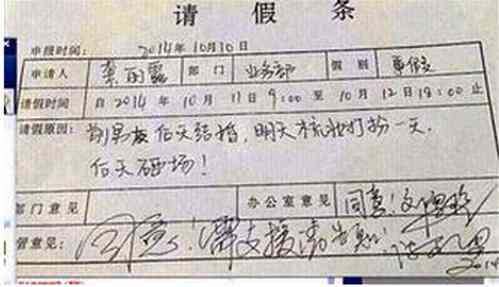 请假条
申报时间: 2014年10月10日
申请人 秦雨露 部门 业务部 假别 事假
请假时间 自2014年10月11日9:00至10月12日18:00止
请假原因: 前男友后天结婚,明天梳妆打扮一天,
后天砸场!
部门意见 办公室意见 同意!
管意见: 同意!需支援请告知!
2014